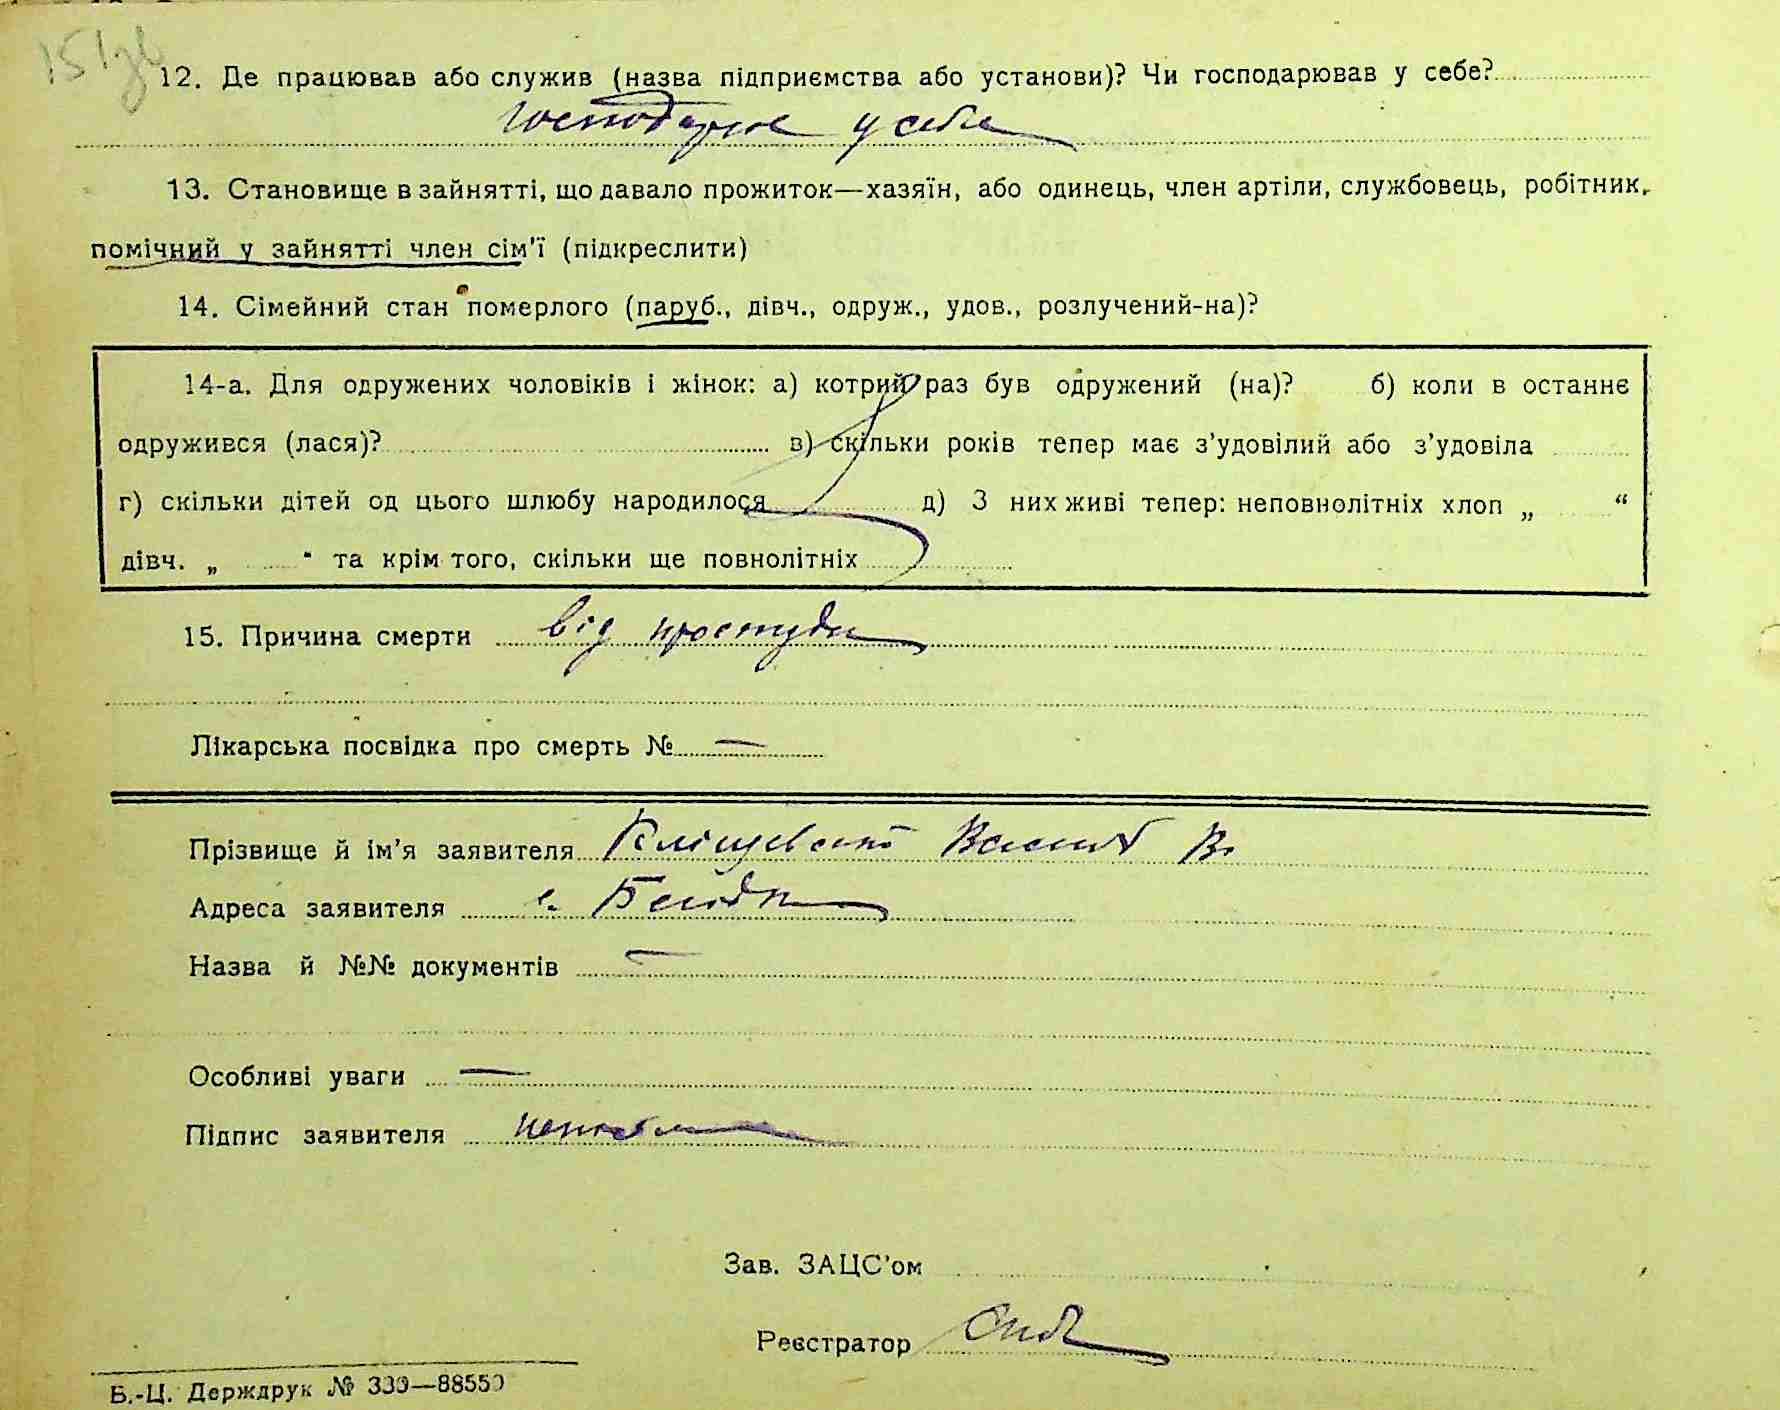 151зв
12. Де працював або служив (назва підприємства або установи)? Чи господарював у себе?
господарює у себе
13. Становище в зайнятті, що давало прожиток—хазяїн, або одинець, член артіли, службовець, робітник,
помічний у зайнятті член сім'ї (підкреслити)
14. Сімейний стан померлого (паруб., дівч., одруж., удов., розлучений-на)?
14-а. Для одружених чоловіків і жінок: а) котрий раз був одружений (на)? б) коли в останнє
одружився (лася)? в) скільки років тепер має з'удовілий або з'удовіла
г) скільки дітей од цього шлюбу народилося д) З них живі тепер: неповнолітніх хлоп „ “
дівч. „ “ та крім того, скільки ще повнолітніх
15. Причина смерти від простуди
Лікарська посвідка про смерть № —
Прізвище й ім'я заявителя Кліщевський Василь В.
Адреса заявителя с.
Назва й №№ документів —
Особливі уваги —
Підпис заявителя
Зав. ЗАЦС'ом
Реєстратор
Б.-Ц. Держдрук № 339—88550